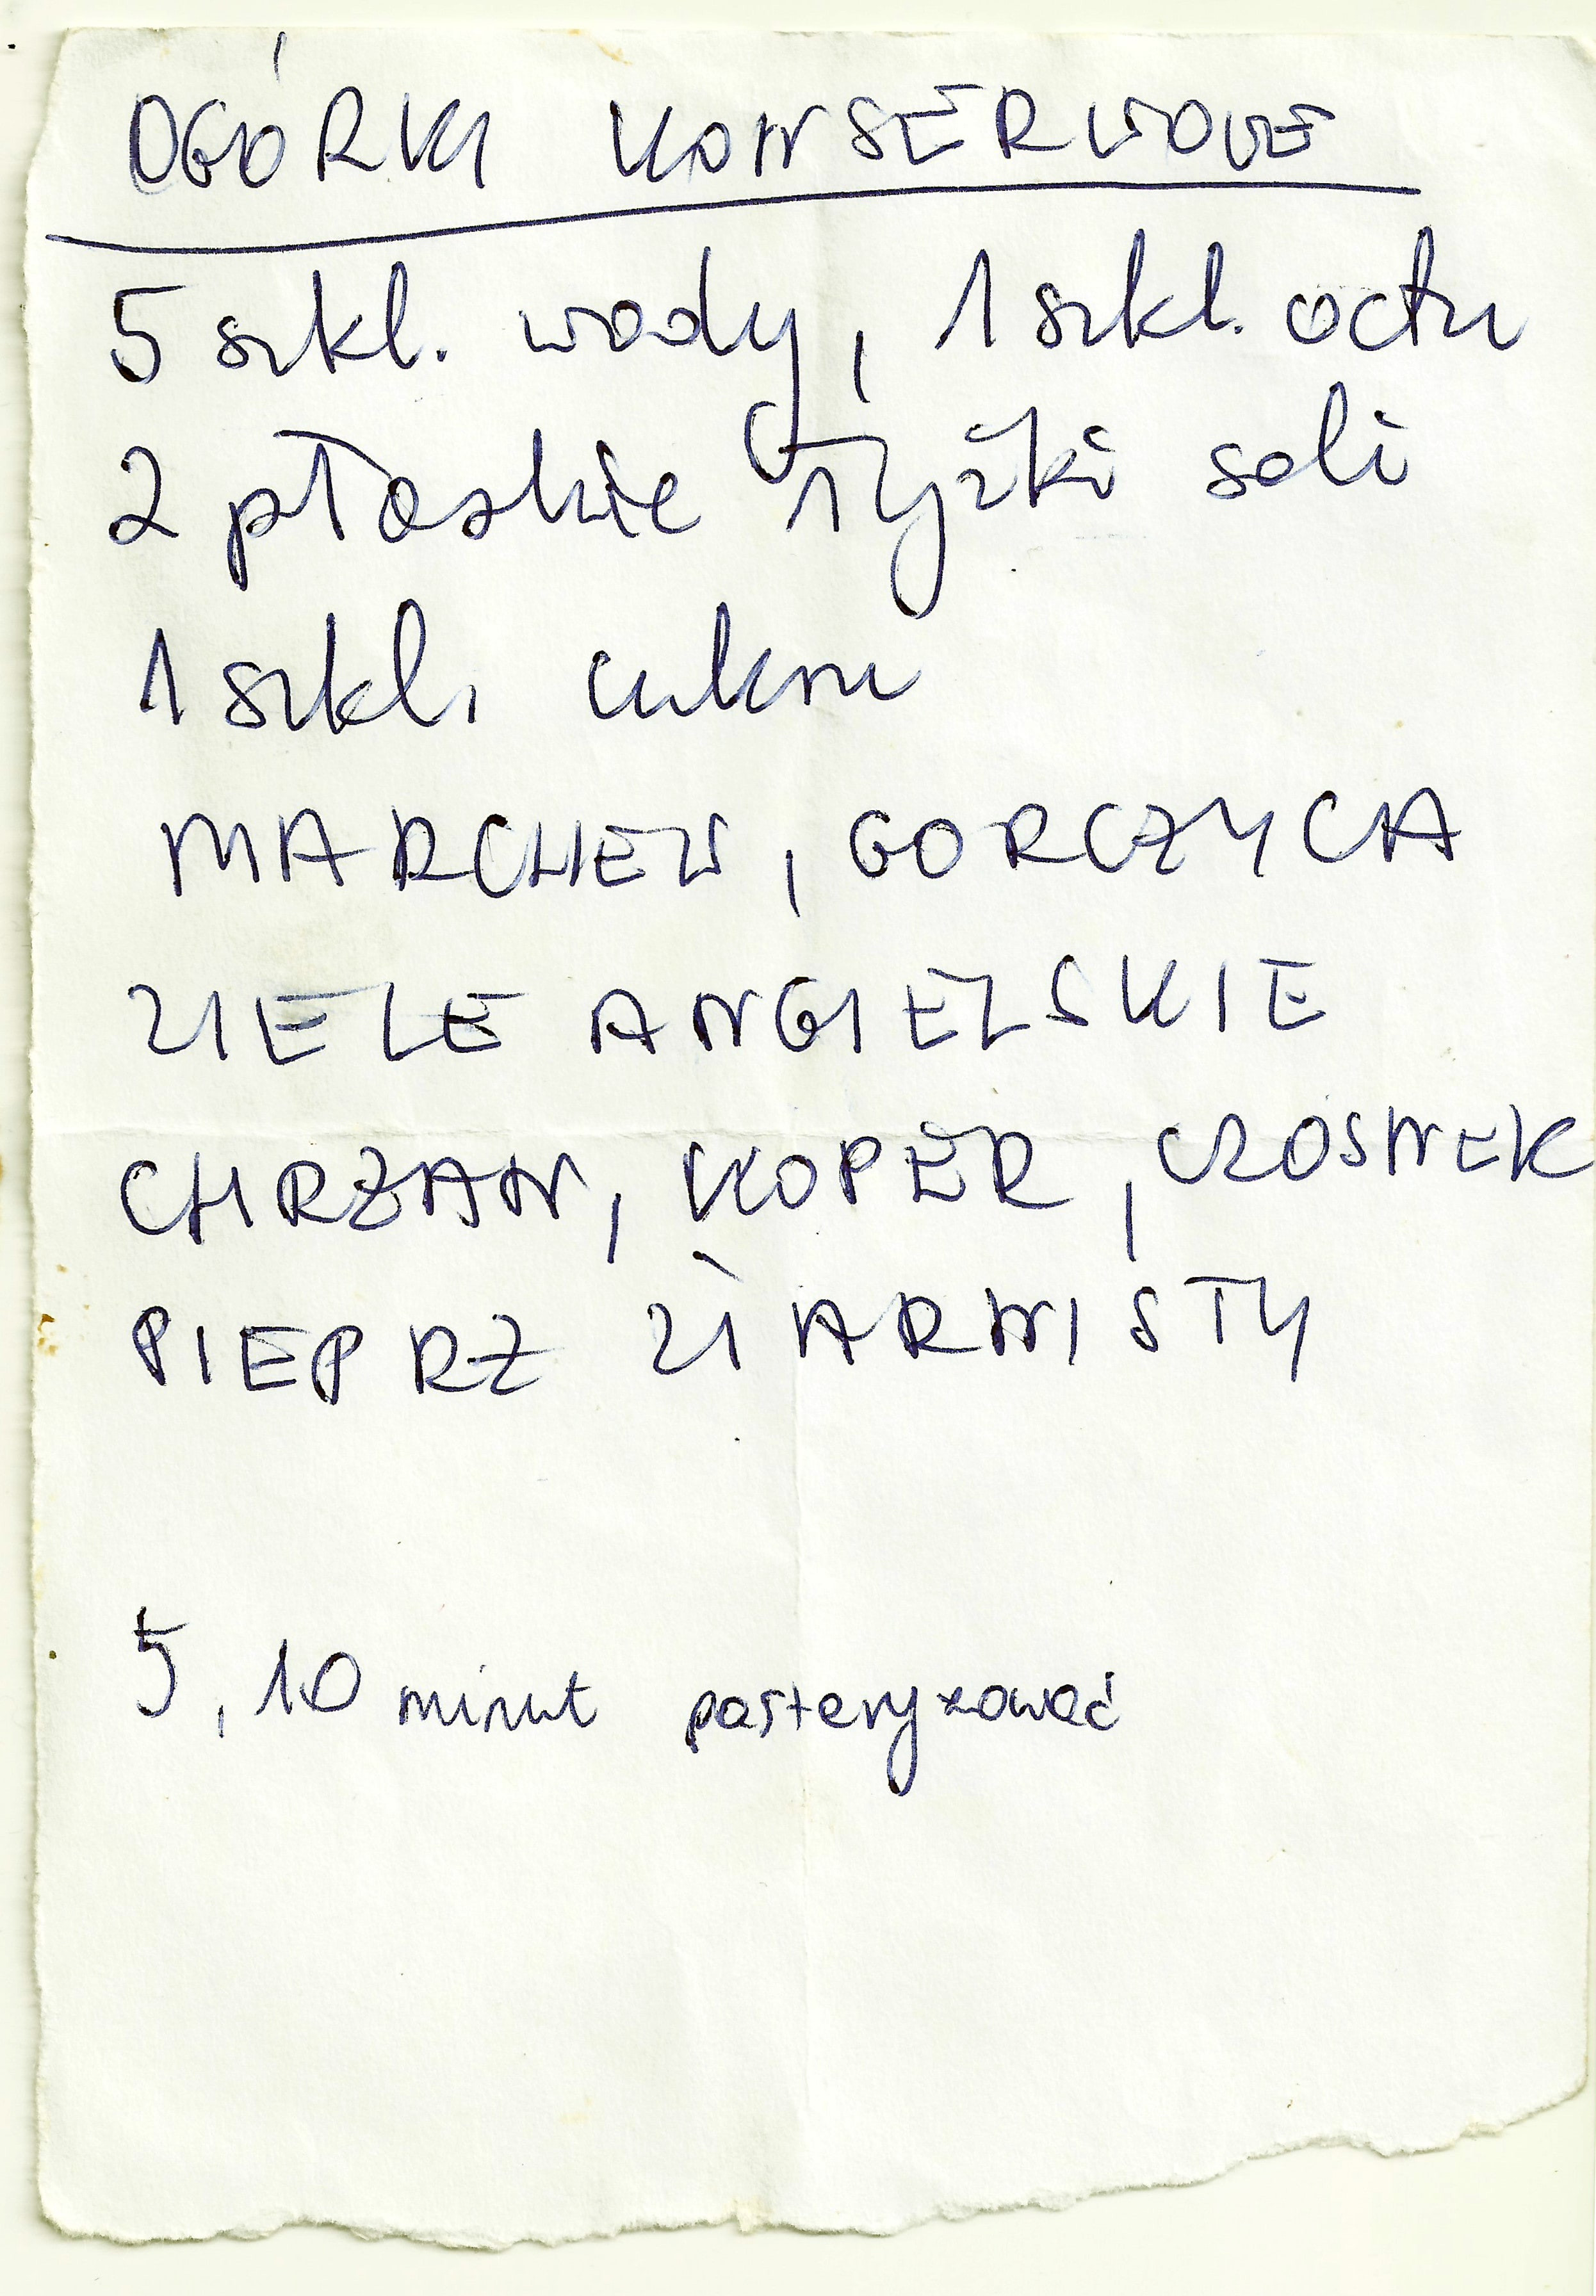 OGÓRKI KONSERWOWE
5 szkl. wody, 1 szkl. octu
2 płaskie łyżki soli
1 szkl. cukru
MARCHEW, GORCZYCA
ZIELE ANGIELSKIE
CHRZAN, KOPER, CZOSNEK
PIEPRZ ZIARNISTY
5, 10 minut pasteryzować